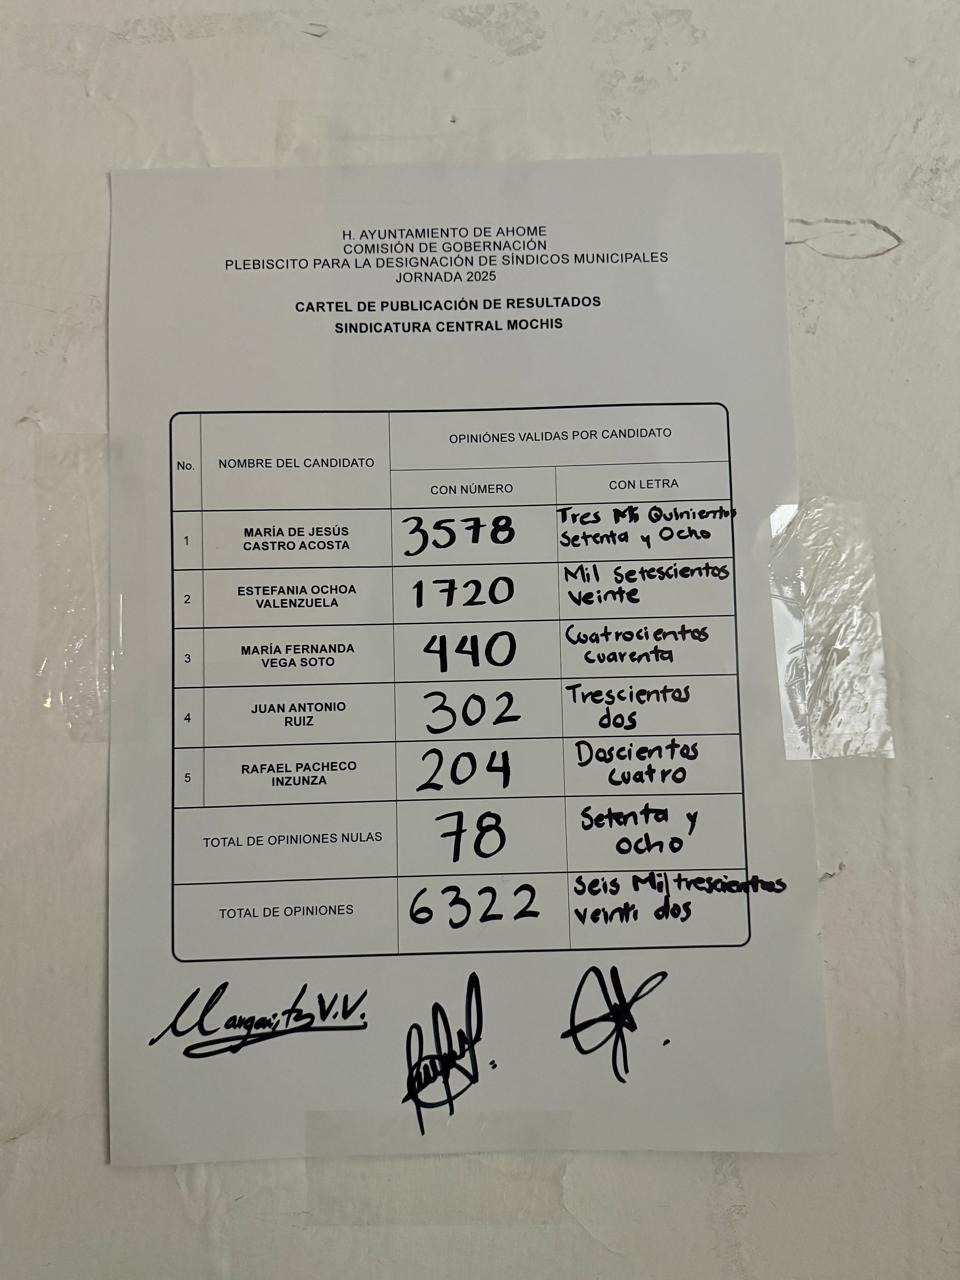 H. AYUNTAMIENTO DE AHOME
COMISIÓN DE GOBERNACIÓN
PLEBISCITO PARA LA DESIGNACIÓN DE SÍNDICOS MUNICIPALES
JORNADA 2025
CARTEL DE PUBLICACIÓN DE RESULTADOS
SINDICATURA CENTRAL MOCHIS
No.
NOMBRE DEL CANDIDATO
OPINIÓNES VALIDAS POR CANDIDATO
CON NÚMERO
CON LETRA
1
MARÍA DE JESÚS
CASTRO ACOSTA
3578
Tres Mil Quinientos
Setenta y Ocho
2
ESTEFANIA OCHOA
VALENZUELA
1720
Mil Setescientos
veinte
3
MARÍA FERNANDA
VEGA SOTO
440
Cuatrocientos
cuarenta
4
JUAN ANTONIO
RUIZ
302
Trescientos
dos
5
RAFAEL PACHECO
INZUNZA
204
Doscientos
cuatro
TOTAL DE OPINIONES NULAS
78
Setenta y
ocho
TOTAL DE OPINIONES
6322
Seis Mil trescientos
veinti dos
Margarita V.V.